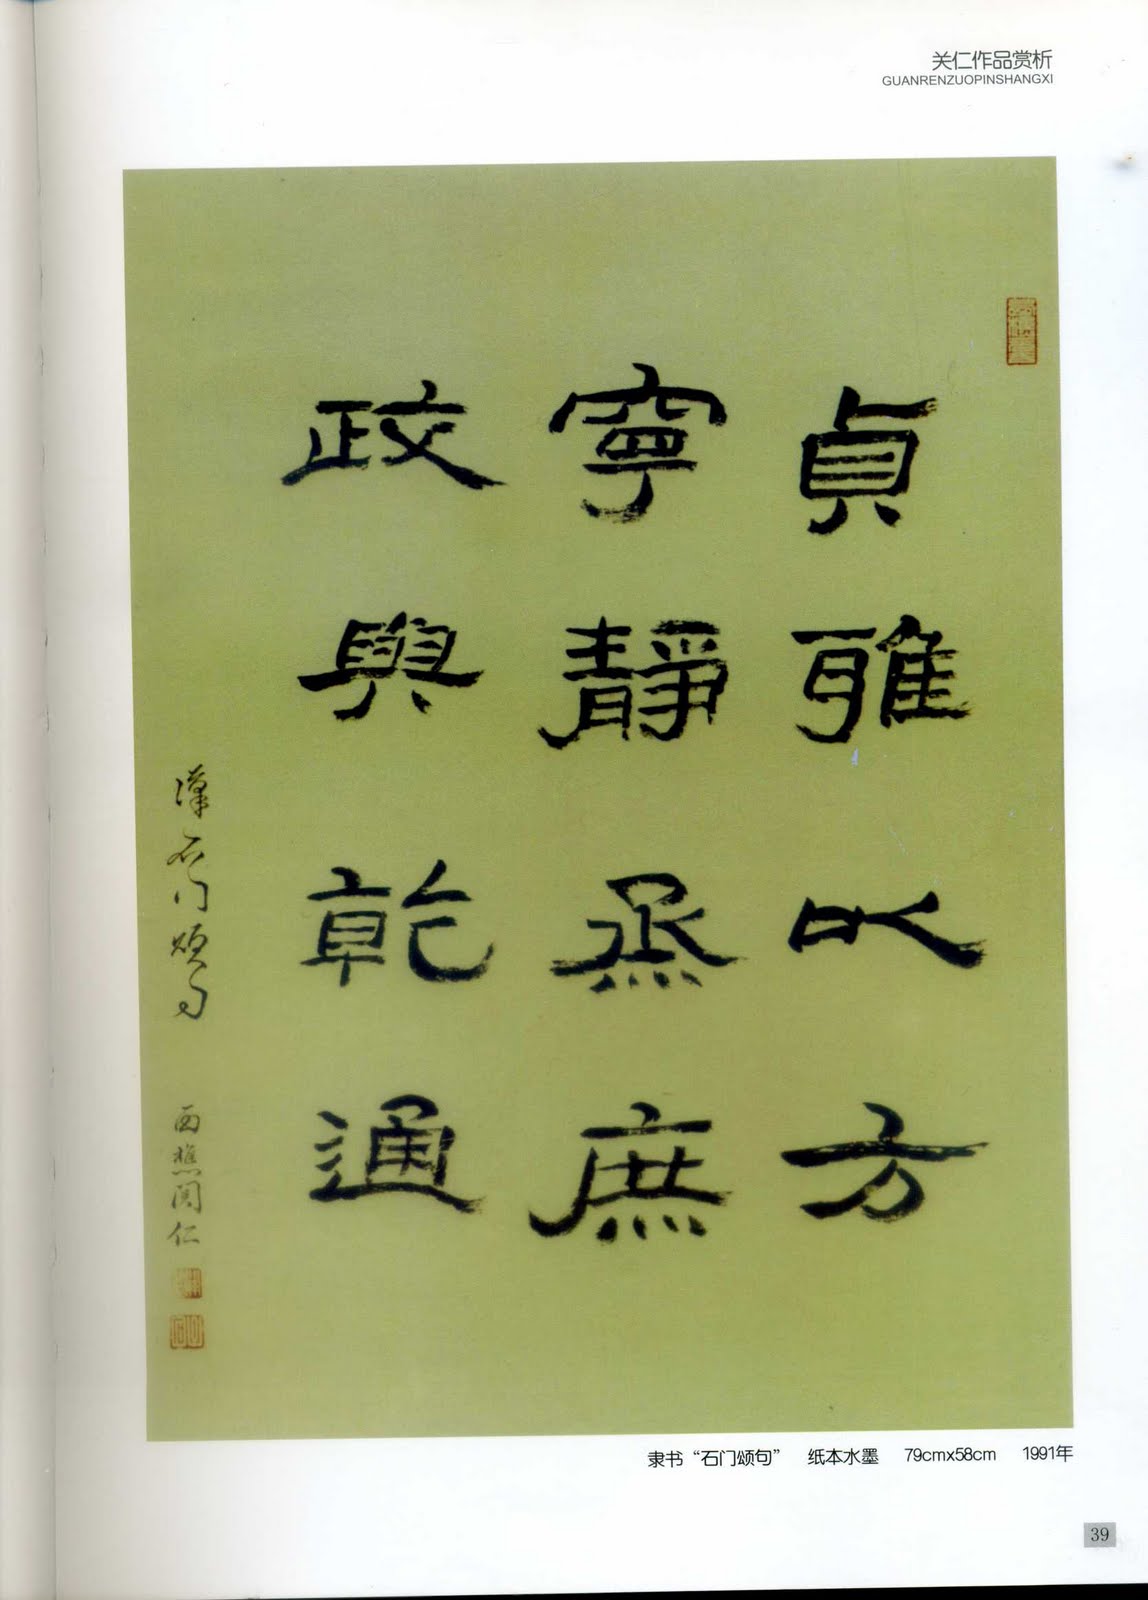 关仁作品赏析
GUANRENZUOPINSHANGXI
貞雅以方
寧靜烝庶
政與乾通
漢石门頌句
西樵関仁
隶书“石门颂句” 纸本水墨 79cmx58cm 1991年
39